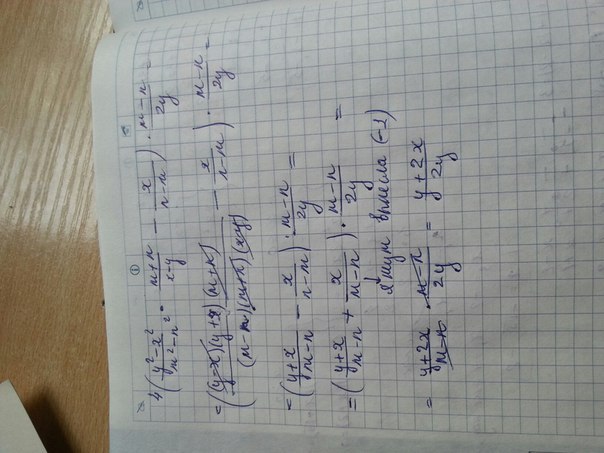 ①
4 ( (y² − x²)/(m² − n²) · (m+n)/(x−y) − x/(n−m) ) · (m−n)/2y =
= ( (y−x)(y+x)(m+n)/(m−n)(m+n)(x−y) − x/(n−m) ) · (m−n)/2y =
= ( (y+x)/(m−n) − x/(n−m) ) · (m−n)/2y =
= ( (y+x)/(m−n) + x/(m−n) ) · (m−n)/2y =
я тут вынесла (−1)
= (y+2x)/(m−n) · (m−n)/2y = (y+2x)/2y